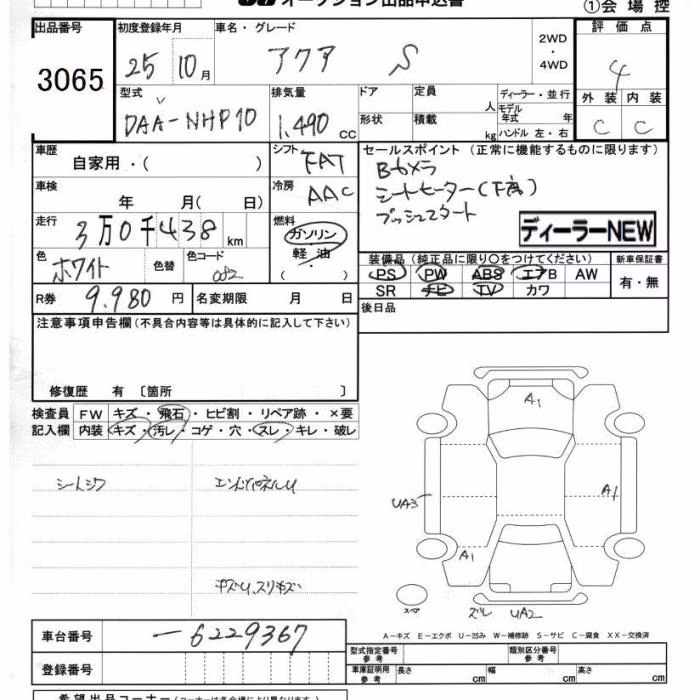 オークション出品申込書
①会場控
出品番号
3065
初度登録年月
25 10月
車名・グレード
アクア S
2WD
・
4WD
評価点
4
外装 内装
C C
型式
DAA-NHP10
排気量
1,490 CC
ドア
形状
定員 人
積載 kg
ディーラー・並行
モデル年式 年
ハンドル 左・右
車歴
自家用・( )
シフト
FAT
セールスポイント (正常に機能するものに限ります)
Bカメラ
シートヒーター(下席)
プッシュスタート
ディーラーNEW
車検
年 月( 日)
冷房
AAC
走行
3万0千438 km
燃料
ガソリン
軽油
( )
色
ホワイト
色替
色コード
082
装備品 (純正品に限り○をつけてください)
PS PW ABS エアB AW
SR ナビ TV カワ
新車保証書
有・無
R券 9.980 円
名変期限 月 日
後日品
注意事項申告欄(不具合内容等は具体的に記入して下さい)
修復歴 有〔箇所 〕
検査員記入欄
FW キズ・飛石・ヒビ割・リペア跡・×要
内装 キズ・汚レ・コゲ・穴・スレ・キレ・破レ
シートシワ
エンドパネルU
キズU、スリキズ
A1
UA3
A1
A1
スペア
ズレ UA2
A－キズ E－エクボ U－凹み W－補修跡 S－サビ C－腐食 XX－交換済
車台番号
－6229367
登録番号
型式指定番号 参考
類別区分番号 参考
車庫証明用 参考
長さ cm 幅 cm 高さ cm
希望出品コーナー